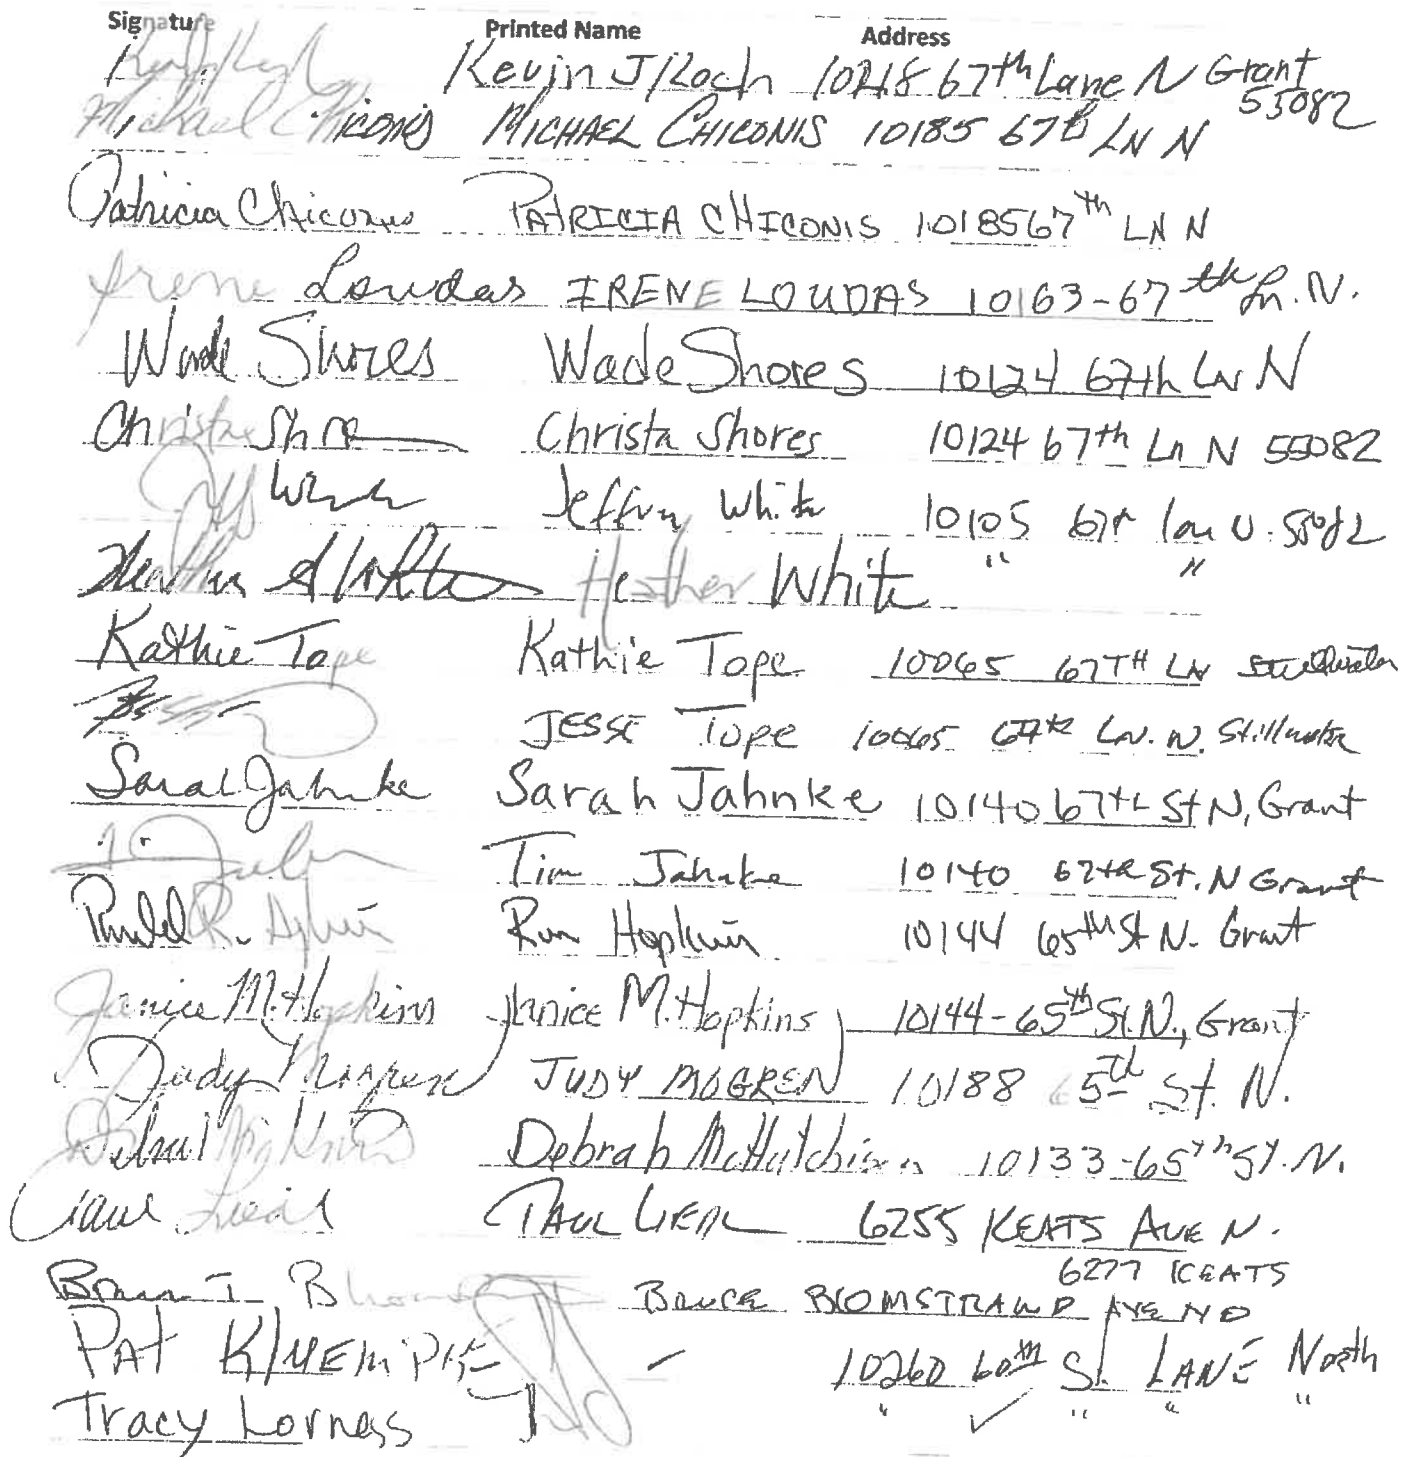 Signature Printed Name Address
Kevin J Koch 10218 67th Lane N Grant
55082
Michael Chiconis MICHAEL CHICONIS 10185 67th LN N
Patricia Chiconis PATRICIA CHICONIS 10185 67th LN N
Irene Loudas IRENE LOUDAS 10163-67th Ln. N.
Wade Shores Wade Shores 10124 67th LN N
Christa Shores 10124 67th Ln N 55082
Jeff White Jeffrey White 10105 67th 55082
Heather White " "
Kathie Tope Kathie Tope 10065 67TH LN Stillwater
JESSE Tope 10065 67th LN. N. Stillwater
Sarah Jahnke Sarah Jahnke 10140 67th St N, Grant
Tim Jahnke 10140 67th St. N Grant
R. Ron Hopkins 10144 65th St N. Grant
Janice M. Hopkins Janice M. Hopkins 10144-65th St. N., Grant
Judy Mogren JUDY MOGREN 10188 65th St. N.
Debrah McHutchison 10133-65th St. N.
PAUL 6255 KEATS AVE N.
6277 KEATS
BRUCE BLOMSTRAND AVE NO
PAT KLUEMPKE 10260 60th St. LANE North
Tracy Lorness " ✓ " " "